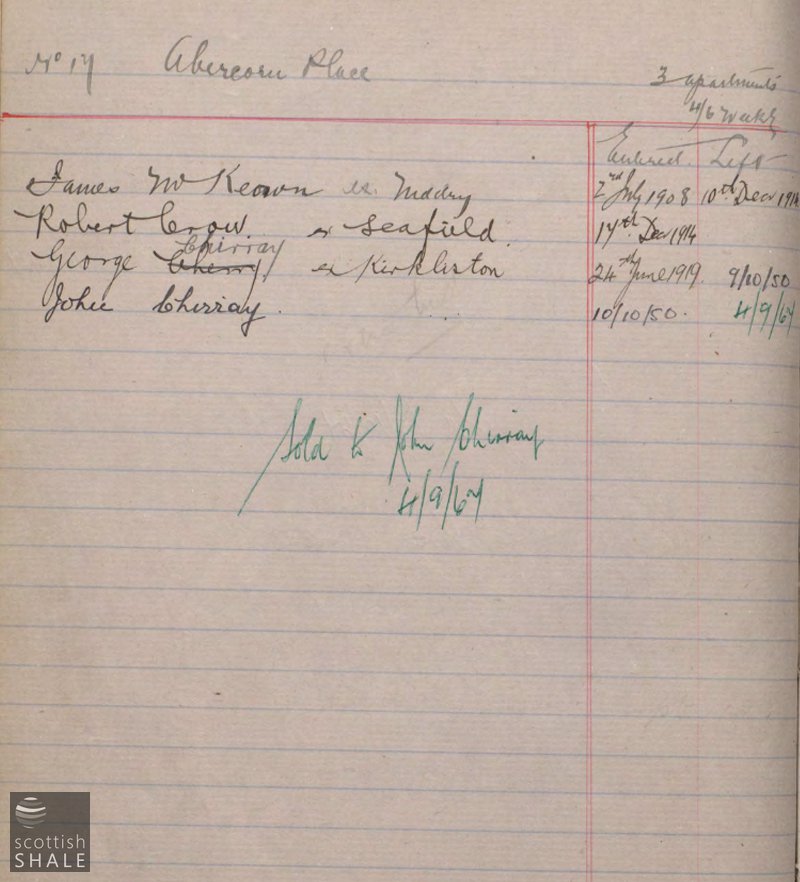 No 17 Abercorn Place
3 apartments
4/6 weekly
Entered. Left
James McKeown ex. 2nd July 1908 10th Decr 1914
Robert Crow. ex Seafield. 17th Decr 1914
Chirray
George Cherry, ex Kirkliston 24th June 1919. 9/10/50
John Chirray. 10/10/50. 4/9/67
Sold to John Chirray
4/9/67
scottish
SHALE